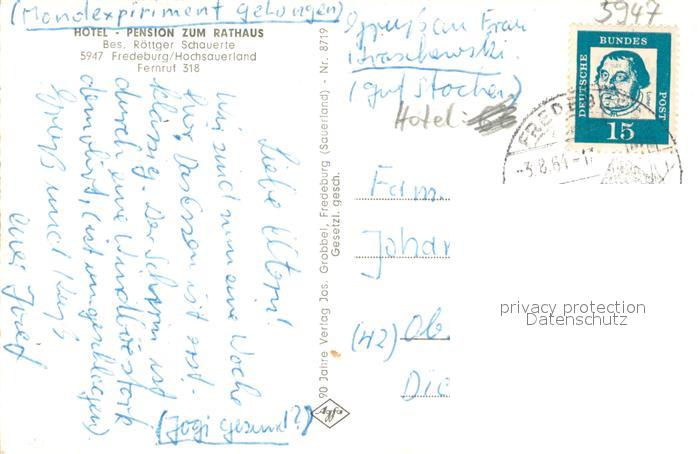 (Mondexpiriment gelungen)
HOTEL - PENSION ZUM RATHAUS
Bes. Röttger Schauerte
5947 Fredeburg/Hochsauerland
Fernruf 318
Liebe Eltern!
Wir sind nun eine Woche
hier. Das Essen ist erst-
klassig. Der Schirm ist
durch eine Windböe stark
demoliert, (ist umgeschlagen)
Gruß und Kuß
Euer Josef
(Jogi gesund?)
90 Jahre Verlag Jos. Grobbel, Fredeburg (Sauerland) - Nr. 8719
Gesetzl. gesch.
Agfa
Gruß an Frau
(auf Stochen)
Hotel
5947
DEUTSCHE BUNDES POST
15
FREDEBURG
-3.8.64-17
Fam.
Johan
(42) Ob.
Die
privacy protection
Datenschutz